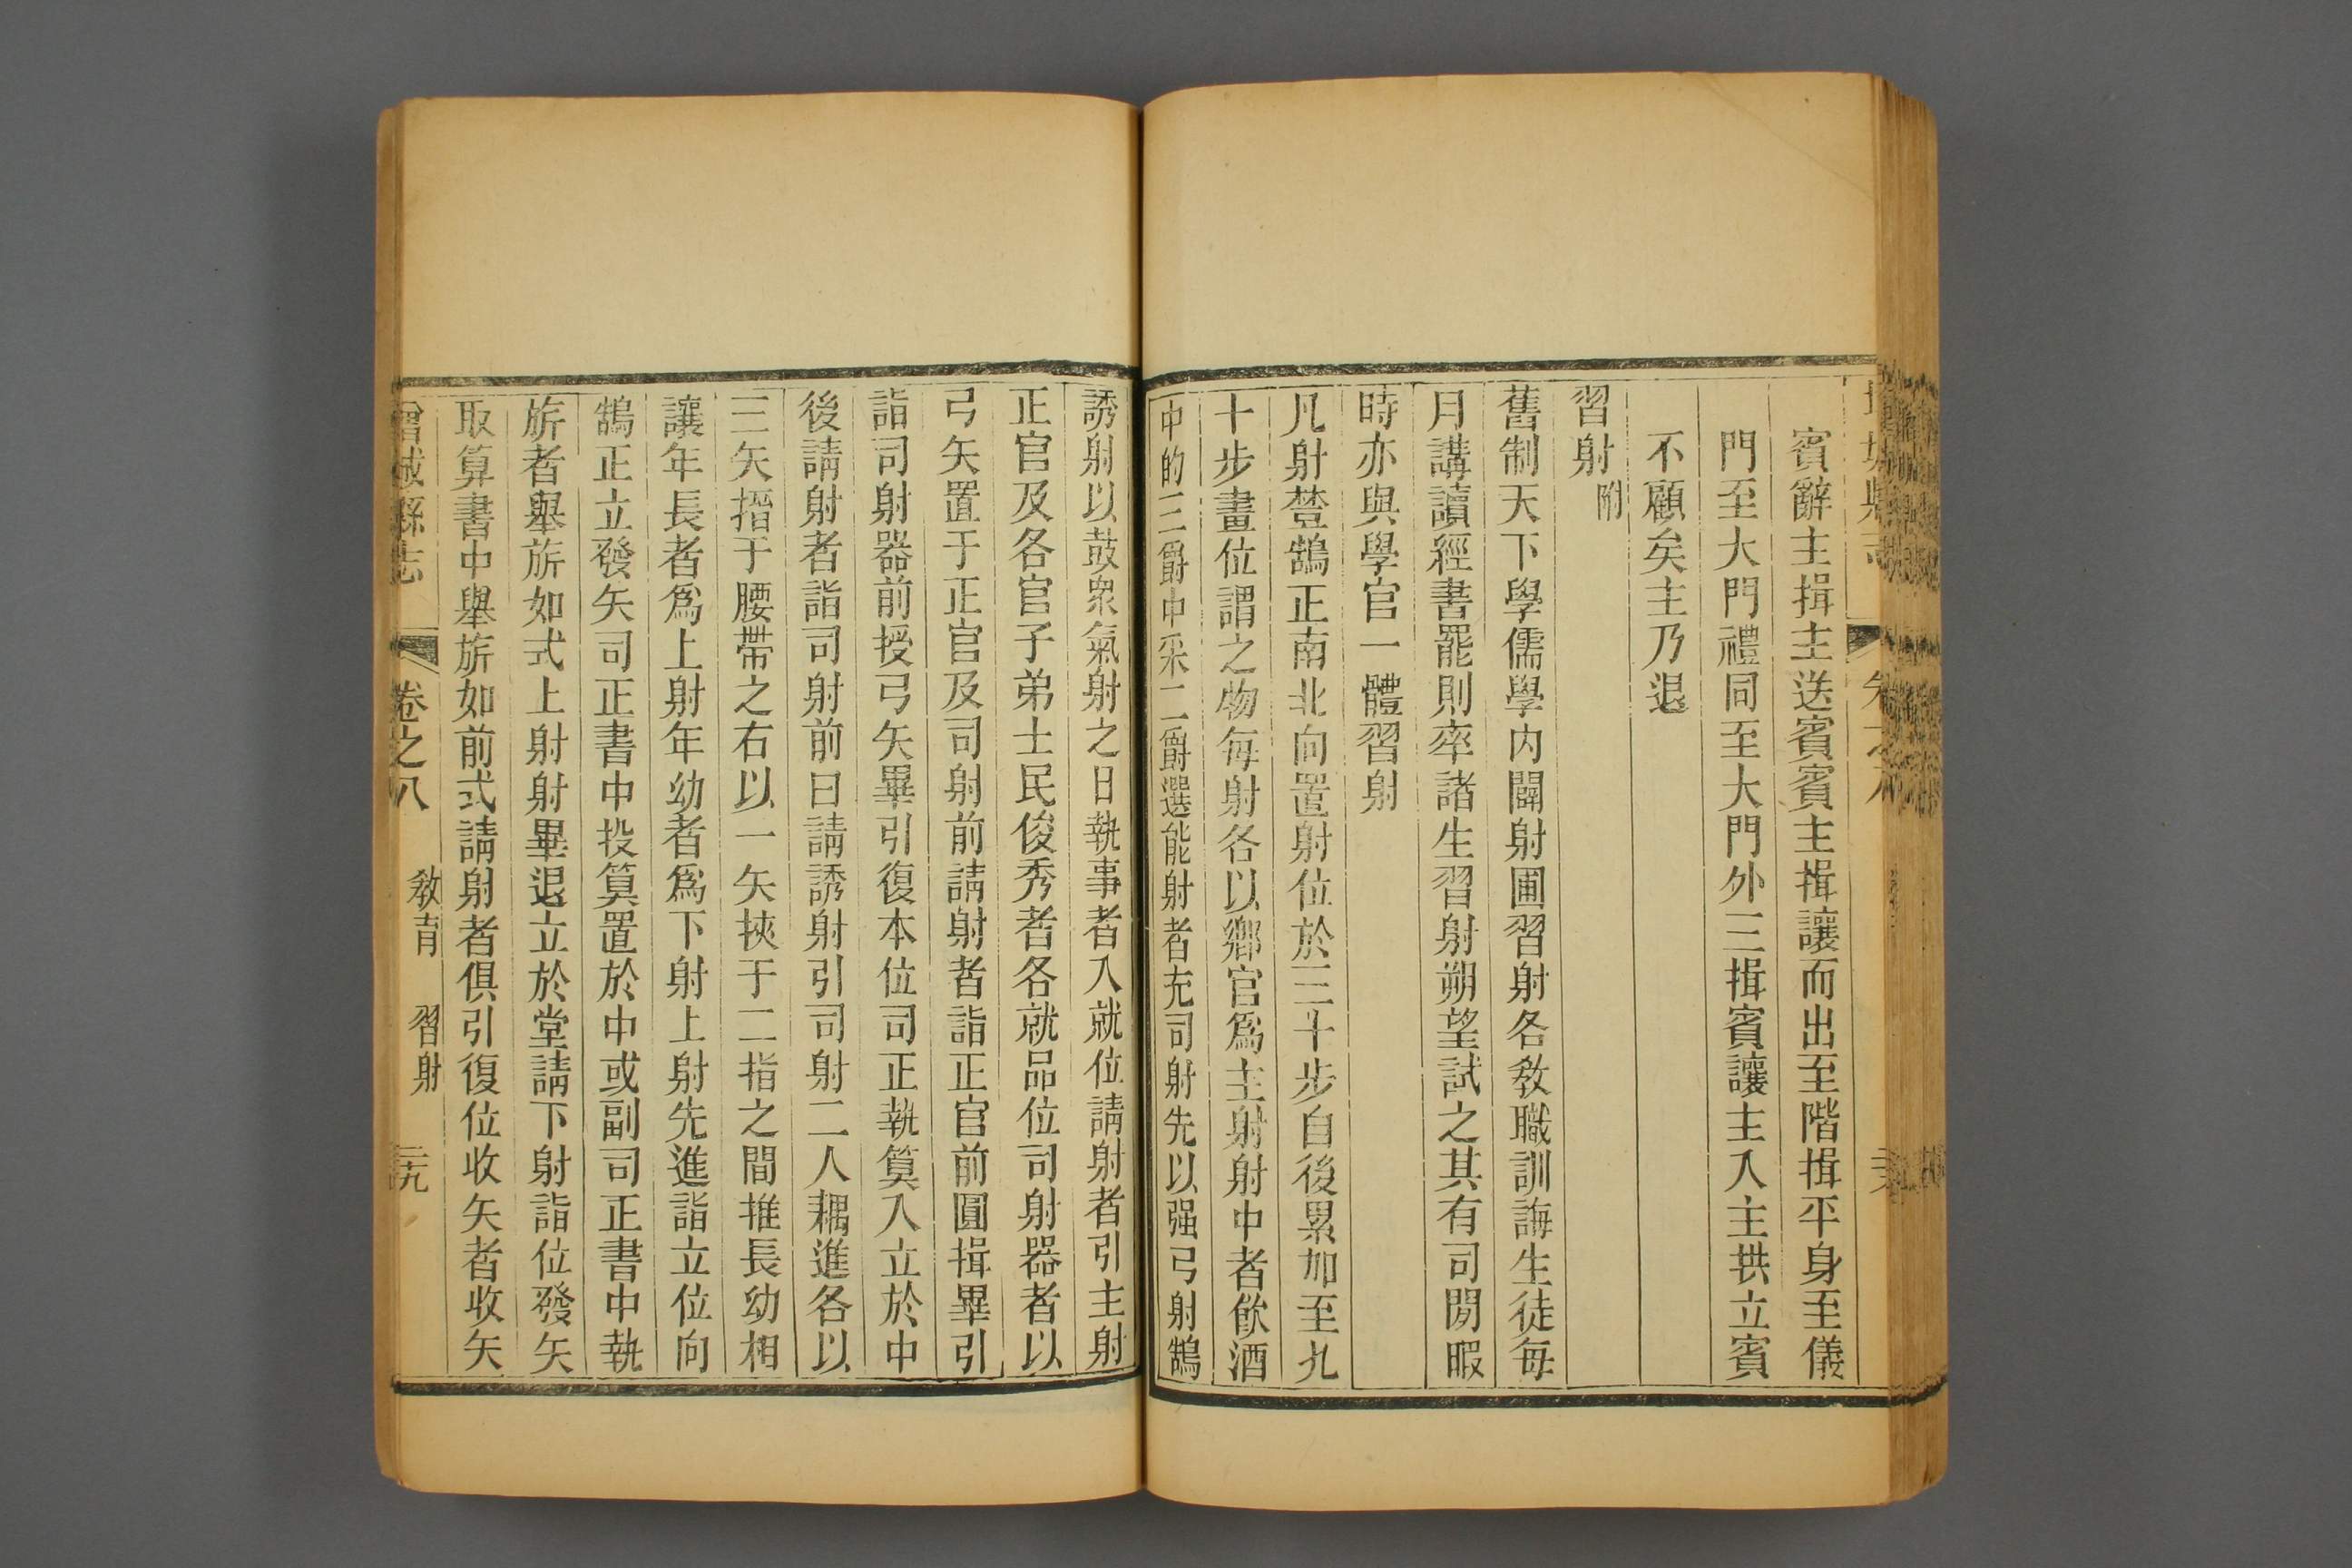 賓辭主揖主送賓賓主揖讓而出至階揖平身至儀
門至大門禮同至大門外三揖賓讓主入主拱立賓
不顧矣主乃退
習射附
舊制天下學儒學內闢射圃習射各敎職訓誨生徒每
月講讀經書罷則率諸生習射朔望試之其有司閒暇
時亦與學官一體習射
凡射豋鵠正南北向置射位於三十步自後累加至九
十步畫位謂之物每射各以鄉官爲主射射中者飮酒
中的三爵中采二爵選能射者充司射先以强弓射鵠
誘射以鼓衆氣射之日執事者入就位請射者引主射
正官及各官子弟士民俊秀者各就品位司射器者以
弓矢置于正官及司射前請射者詣正官前圓揖畢引
詣司射器前授弓矢畢引復本位司正執筭入立於中
後請射者詣司射前曰請誘射引司射二人耦進各以
三矢搢于腰帶之右以一矢挾于二指之間推長幼相
讓年長者爲上射年幼者爲下射上射先進詣立位向
鵠正立發矢司正書中投筭置於中或副司正書中執
旂者舉旂如式上射射畢退立於堂請下射詣位發矢
取算書中舉旂如前式請射者俱引復位收矢者收矢
增城縣志 卷之八 敎育 習射 二十九